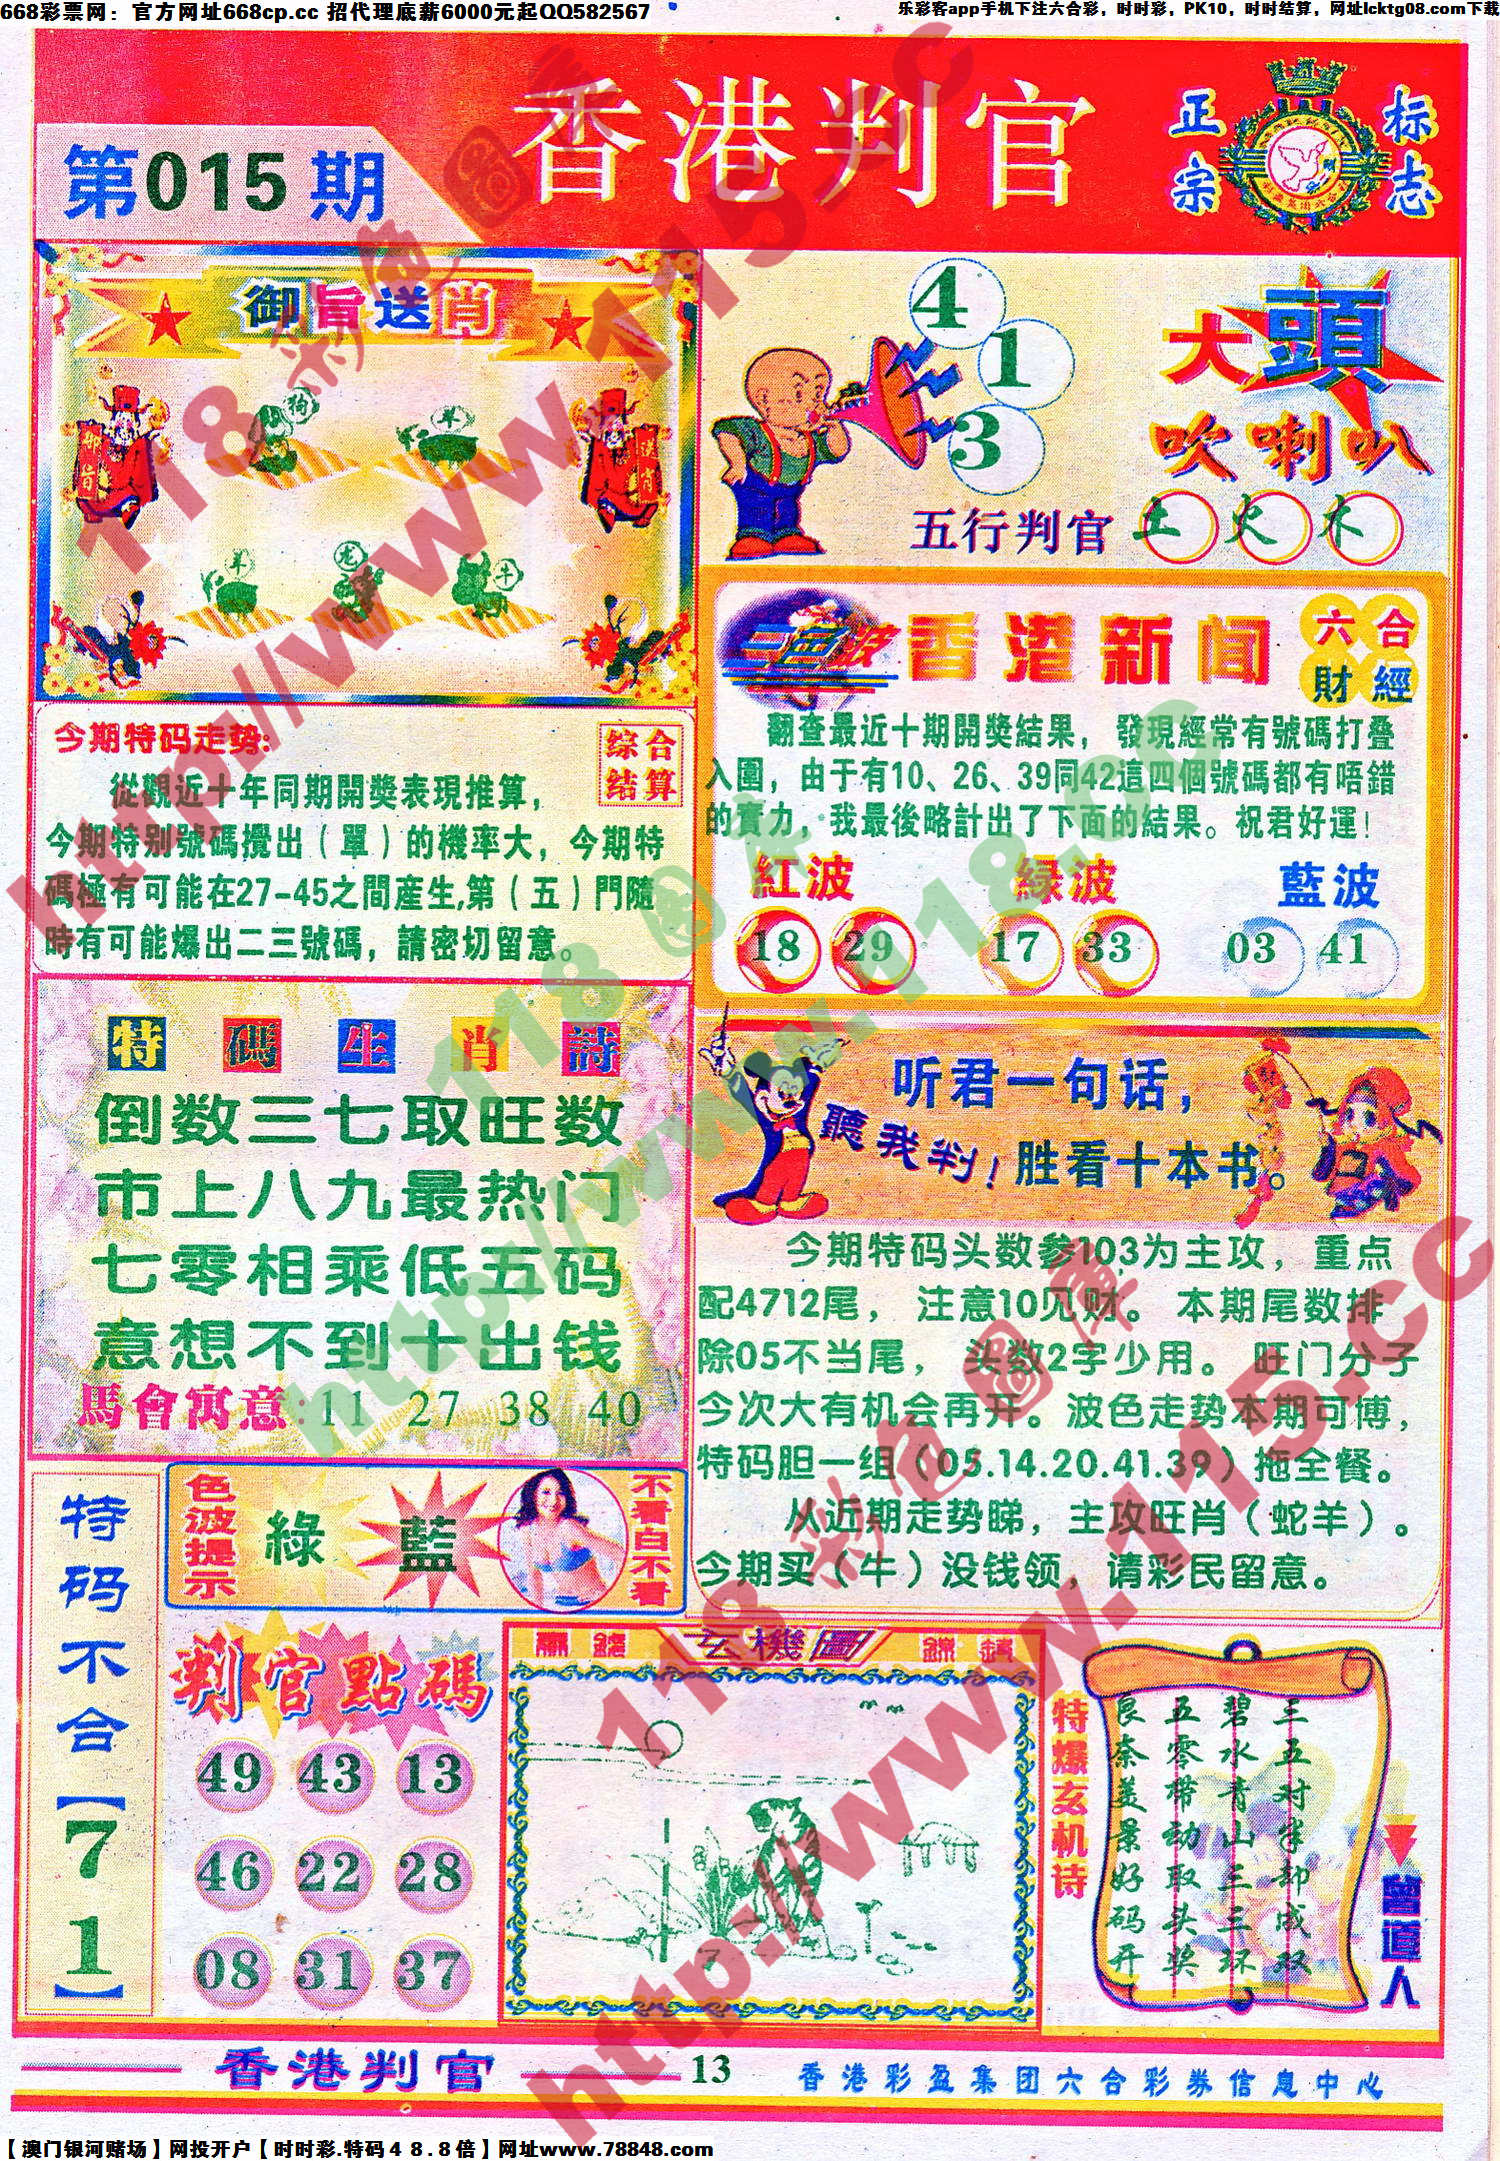 668彩票网：官方网址668cp.cc 招代理底薪6000元起QQ582567
乐彩客app手机下注六合彩，时时彩，PK10，时时结算，网址lcktg08.com下载
第015期
香港判官
正宗
标志
御旨送肖
御旨
送肖
狗
羊
羊
龙
牛
4
1
3
大頭
吹喇叭
五行判官 土 火 木
今期特码走势:
综合
结算
從觀近十年同期開獎表現推算，
今期特别號碼攪出（單）的機率大，今期特
碼極有可能在27-45之間産生,第（五）門隨
時有可能爆出二三號碼，請密切留意。
三色波
香港新闻
六合
財經
翻查最近十期開獎結果，發現經常有號碼打叠
入圍，由于有10、26、39同42這四個號碼都有唔錯
的實力，我最後略計出了下面的結果。祝君好運！
紅波
緑波
藍波
18 29
17 33
03 41
特碼生肖詩
倒数三七取旺数
市上八九最热门
七零相乘低五码
意想不到十出钱
馬會寓意:11 27 38 40
听君一句话，
聽我判！
胜看十本书。
今期特码头数参103为主攻，重点
配4712尾，注意10见财。本期尾数排
除05不当尾，头数2字少用。旺门分子
今次大有机会再开。波色走势本期可博，
特码胆一组（05.14.20.41.39）拖全餐。
从近期走势睇，主攻旺肖（蛇羊）。
今期买（牛）没钱领，请彩民留意。
特码不合【71】
色波提示
綠
藍
不看白不看
判官點碼
49 43 13
46 22 28
08 31 37
玄機圖
特爆玄机诗
三五对半却成双
碧水青山三三环
五零带动取头奖
良奈美景好码开
曾道人
香港判官
13
香港彩盈集团六合彩券信息中心
【澳门银河赌场】网投开户【时时彩.特码48.8倍】网址www.78848.com
118彩色图库
http://www.115.cc
118图库
http://www.118.cc
118彩色圖庫
http://www.115.cc